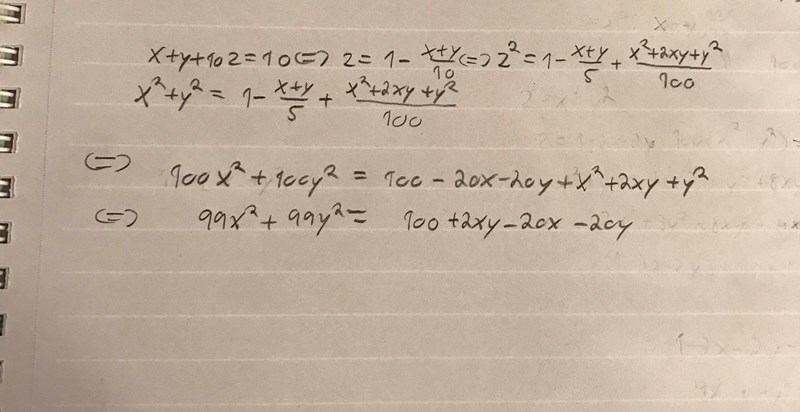 x+y+10z=10 <=> z = 1 - (x+y)/10 <=> z² = 1 - (x+y)/5 + (x²+2xy+y²)/100
x²+y² = 1 - (x+y)/5 + (x²+2xy+y²)/100
<=> 100x² + 100y² = 100 - 20x - 20y + x² + 2xy + y²
<=> 99x² + 99y² = 100 + 2xy - 20x - 20y